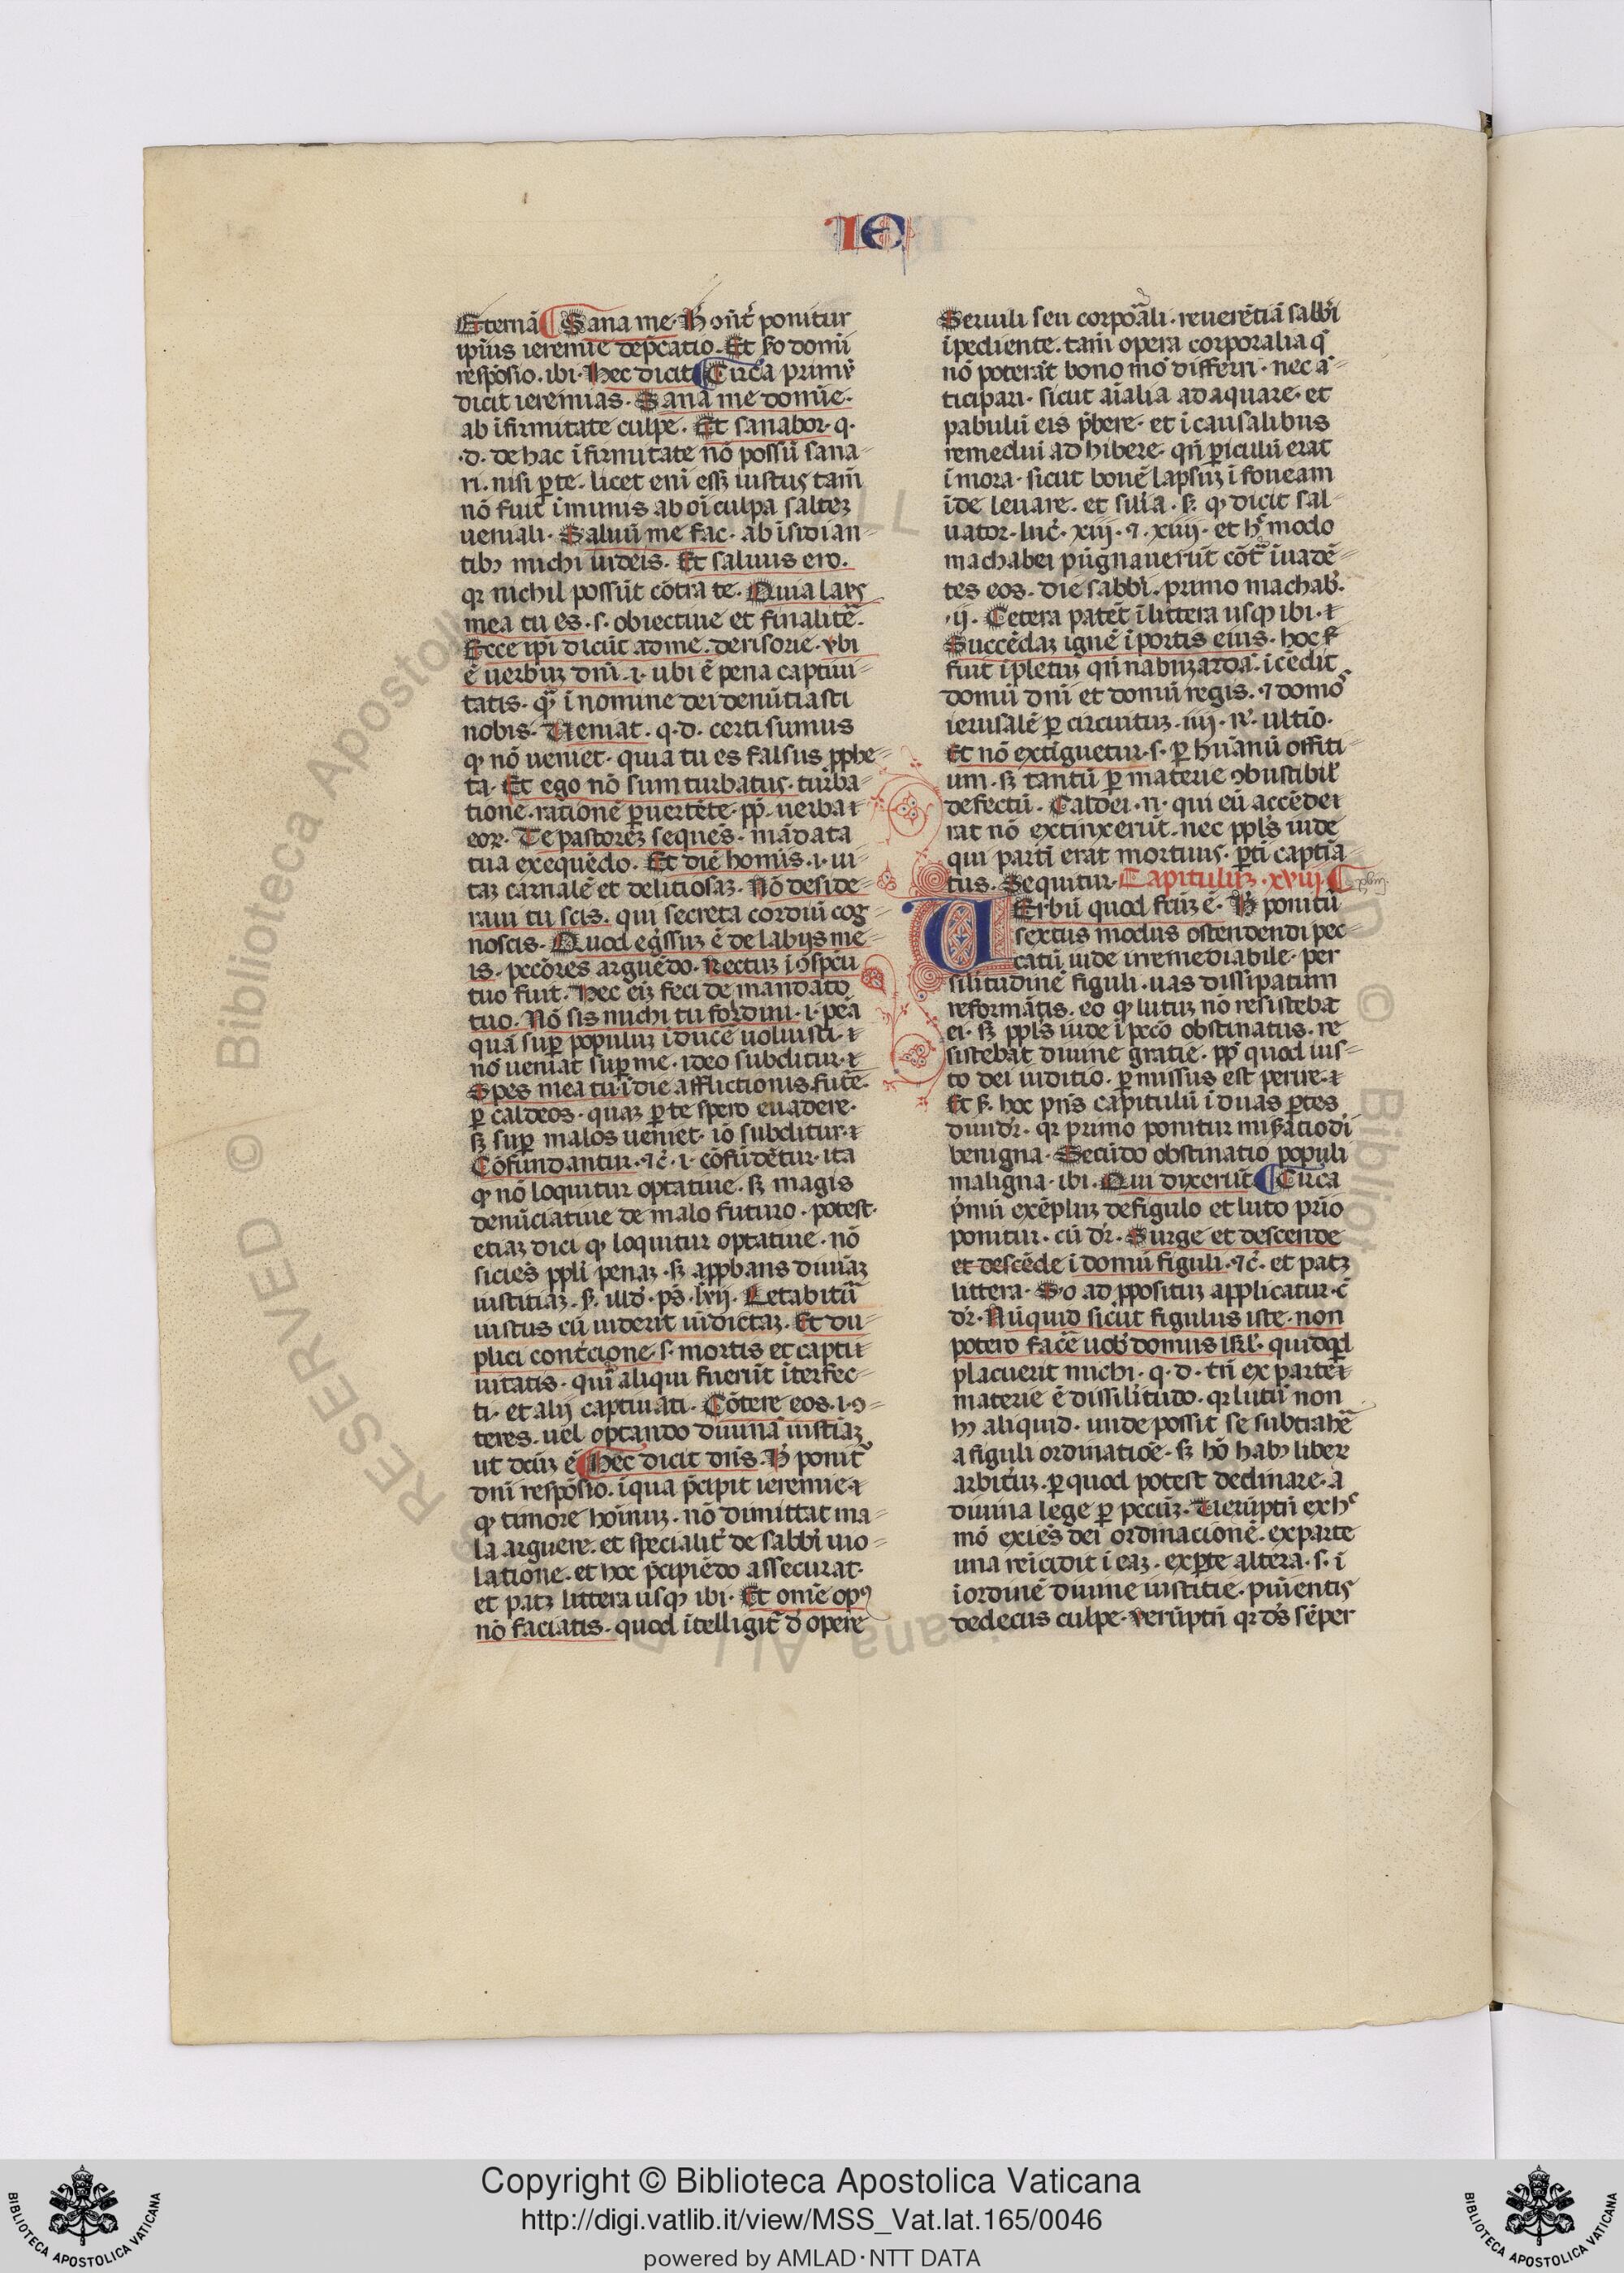 IE
Eternā Sana me. H' oñt' ponitur
ip̄ius ieremie dep̄catio. Et s̄o domī
resp̄osio. ibi. Hec dicit Circa primū
dicit ieremias. Sana me domīe.
ab īfirmitate culpe. Et sanabor. q.
.d. de hac īfirmitate nō possū sana=
ri. nisi ꝑ te. licet eni eēt iustus tam̄
nō fuit īmunis ab oī culpa saltez
ueniali. Saluū me fac. ab īsidian=
tibꝫ michi iudeis. Et saluus ero.
qꝛ nichil possūt cōtra te. Quia laus
mea tu es. s. obiectiue et finalit̄.
Ecce ip̄i dicūt ad me. derisorie. vbi
ē uerbuz dn̄i. i. ubi ē pena captiui
tatis. qm̄ ī nomine dei denūtiasti
nobis. Ueniat. q. d. certi sumus
ꝙ nō ueniet. quia tu es falsus ꝓphe=
ta. Et ego nō sum turbatus. turba=
tione. rationē ꝑuertēte. ꝓp̄. uerba
eoꝝ. Te pastorez sequēs. mādata
tua exequēdo. Et diē homīs. i. ui=
taz carnalē et delitiosaz. Nō deside=
raui tu scis. qui secreta cordiū cog=
noscis. Quod eg̃ssuz ē de labijs me=
is. peccōres arguēdo. Rectuz ī ɔspcū
tuo fuit. Hec eīz feci de mandato
tuo. Nō sis michi tu fordini. i. penā
quā suꝑ populuz īducē uoluisti.
nō ueniat suꝑ me. ideo subditur.
Spes mea tu ī die afflictionis. fut̄e.
ꝑ caldeos. quaz ꝑ te spero euadere.
sꝫ suꝑ malos ueniet. iō subditur.
Cōfundantur. ⁊c̄. i. cōfūdētur. ita
ꝙ nō loquitur optatiue. sꝫ magis
denūciatiue de malo futuro. potest.
etiaz dici ꝙ loquitur optatiue. nō
siciēs pp̄li penaz. sꝫ approbans diuinaz
iustitiaz. s̄. illd̄. ps̄. lvij. Letabitur
iustus cū uiderit uīdictaz. Et du=
plici contēcione. s. mortis et captī
uitatis. quī aliqui fuerūt īterfec=
ti. et alij captiuati. Cōtere eos. i. ɔ=
teres. uel optando diuinā iustiāz
ut dcūz ē Hec dicit dn̄s. H' ponitr̄
dn̄i resp̄osio. ī qua p̄cipit ieremie
ꝙ timore hoīnuz. nō dimittat ma=
la arguere. et specialit' de sabbī uio=
latione. et hoc p̄cipiēdo assecurat.
et patꝫ littera usqꝫ ibi. Et omē opꝰ
nō faciatis. quod ītelligit' d' opere
Seruili seu corporali. reuerētiā sabbī
īpediente. tam̄ opera corporalia q'
nō poterāt bono mō differri. nec ā=
ticipari. sicut aīalia adaquare. et
pabulū eis p̄bere. et ī causalibus
remediū adhibere. qn̄ ꝑiculū erat
ī mora. sicut bouē lapsuz ī foueam
īde leuare. et sil'ia. s̄. ꝙ dicit sal=
uator. luc̄. xiij. ⁊. xiiij. et h° modo
machabei pugnauerūt cōt' iuadē=
tes eos. die sabbī. primo machab'.
.ij. Cetera patēt ī littera usqꝫ ibi.
Succēdaz ignē ī portis eius. hoc
fuit īpletuz qn̄ nabuzarda. īcēdit
domū dn̄i et domū regis. ⁊ domos
ierusalē ꝑ circuituz. iiij. R'. ultīo.
Et nō extiguetur. s. ꝑ hūanū offiti=
um. sꝫ tantū ꝑ materie ɔbustibil'
defectū. Caldei. n. qui eū accēde
rat nō extinxerūt. nec pp̄ls iude
qui partī erat mortuus. ꝑtī captia=
tus. Sequitur. Capituluz. xviij
Uerbū quod fcūz ē. H' ponitū
sextus modus ostendendi pec=
catū iude irremediabile. per
sil'itudinē figuli. uas dissipatum
reformātis. eo ꝙ lutuz nō resistebat
ei. sꝫ pp̄ls iude ī pccō obstinatus. re
sistebat diuine gratie. ꝓp̄ quod ius=
to dei iuditio. ꝑmissus est perire.
Et s̄. hoc pn̄s capitulū ī duas ꝑtes
diuidr̄. qꝛ primo ponitur mis̄ratio dī
benigna. Secūdo obstinatio populi
maligna. ibi. Qui dixerūt Circa
p̄mū exēpluz de figulo et luto prīo
ponitur. cū dr̄. Surge et descende
et descēde ī domū figuli. ⁊c̄. et patꝫ
littera. S°o ad ꝓpositū applicatur. c̄
dr̄. Nūquid sicut figulus iste. non
potero facē uob' domus isrl'. quidqd
placuerit michi. q. d. tn̄ ex parte
materie ē dissil'itudo. qꝛ lutū non
hꝫ aliquid. unde possit se subtrahē
a figuli ordinatiōe. sꝫ hō habꝫ liber
arbit'uz. ꝑ quod potest declinare. a
diuina lege ꝑ pccūz. Uerūptn̄ ex h°
mō exiēs dei ordinacionē. ex parte
una reicidit ī eaz. ex ꝑte altera. s. ī
iordinē diuine iustitie. puīentis
dedecus culpe. verūptn̄ qꝛ d's sēper
Copyright © Biblioteca Apostolica Vaticana
http://digi.vatlib.it/view/MSS_Vat.lat.165/0046
powered by AMLAD·NTT DATA
BIBLIOTECA APOSTOLICA VATICANA
BIBLIOTECA APOSTOLICA VATICANA